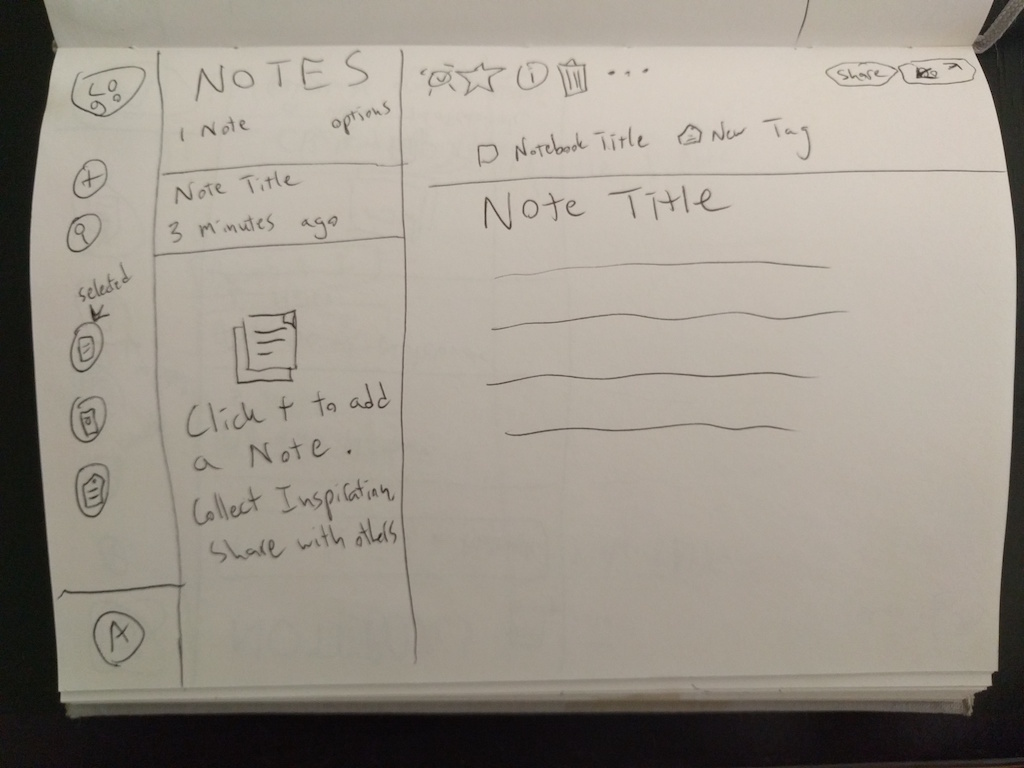 LO
go
selected
A
NOTES
1 Note options
Note Title
3 minutes ago
Click + to add
a Note.
Collect Inspiration
share with others
i
...
Share
Notebook Title New Tag
Note Title